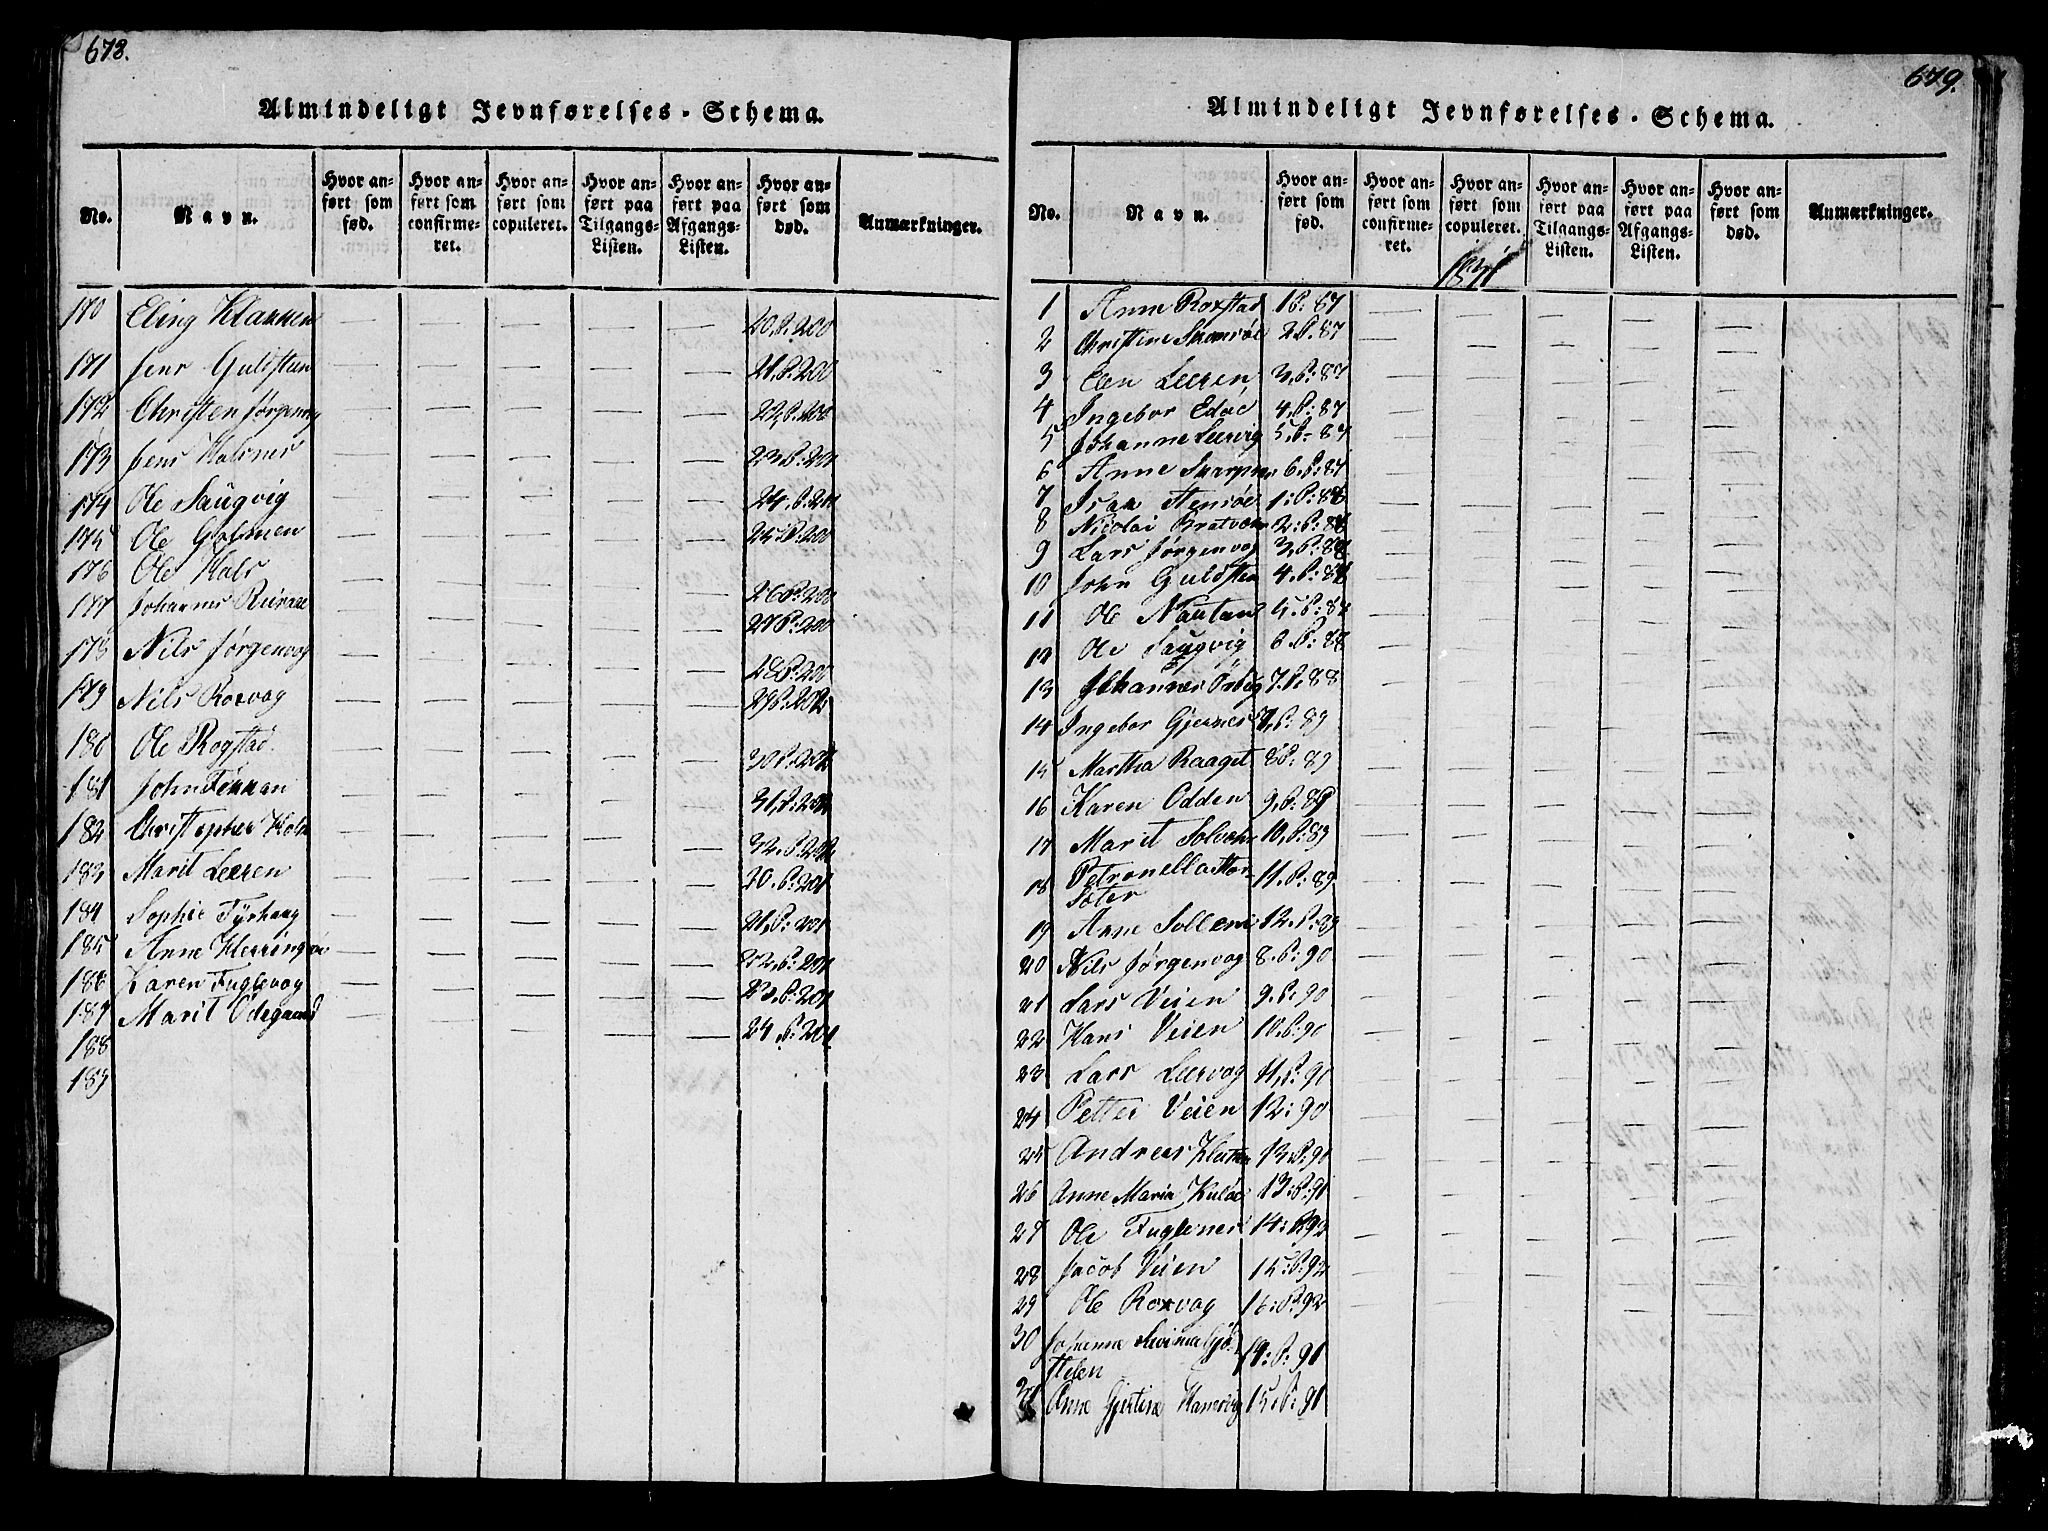 678.
Almindeligt Jevnførelses-Schema.
No.
Navn.
Hvor anført som fød.
Hvor anført som confirmeret.
Hvor anført som copuleret.
Hvor anført paa Tilgangs-Listen.
Hvor anført paa Afgangs-Listen.
Hvor anført som død.
Anmærkninger.
170 Eling — — — — — 20,P:200
171 Jens Guldsten — — — — — 21,P:200
172 Christen Jørgenvog — — — — — 22,P:200
173 Jens Halsnes — — — — — 23,P:200
174 Ole Saugvig — — — — — 24,P:200
175 Ole Holmen — — — — — 25,P:200
176 Ole Hals — — — — — 26P:200
177 Johannes — — — — — 27P:200
178 Nils Jørgenvog — — — — — 28P:200
179 Nils Roxvog — — — — — 29P:202
180 Ole Rogstad. — — — — — 30P:202
181 John — — — — — 31,P:202
182 Christopher — — — — — 32,P:202
183 Marit Leeren — — — — — 20,P:201
184 Sophie Tyrhaug — — — — — 21,P:201
185 Anne — — — — — 22,P:201
186 Karen Fuglevog — — — — — 23,P:201
187 Marit Ødegaard — — — — — 24,P:201
188
189
679.
Almindeligt Jevnførelses-Schema.
No.
Navn.
Hvor anført som fød.
Hvor anført som confirmeret.
Hvor anført som copuleret.
Hvor anført paa Tilgangs-Listen.
Hvor anført paa Afgangs-Listen.
Hvor anført som død.
Anmærkninger.
1831
1 Anne Roxstad 1P:87 — — — — —
2 Christine 2P:87 — — — — —
3 Elen Leeren 3,P:87 — — — — —
4 Ingebor Edøe 4,P:87 — — — — —
5 Johanne Leervig 5,P:87 — — — — —
6 Anne Skarpnes 6,P:87 — — — — —
7 Isak Stensøe 1:P:88 — — — — —
8 Nicolai Bratvær 2:P:88 — — — — —
9 Lars Jørgenvog 3,P:88 — — — — —
10 John Guldsten 4,P:88 — — — — —
11 Ole Nautan 5,P:88 — — — — —
12 Ole Saugvig 6P:88 — — — — —
13 Johannes 7,P:88 — — — — —
14 Ingebor Gjernes 7,P:89 — — — — —
15 Martha 8P:89 — — — — —
16 Karen Odden 9,P:89 — — — — —
17 Marit 10,P:89 — — — — —
18 Petronella 11,P:89 — — — — —
19 Anne 12,P:89 — — — — —
20 Nils Jørgenvog 8,P:90 — — — — —
21 Lars Veien 9,P:90 — — — — —
22 Hans Veien 10,P:90 — — — — —
23 Lars Leervog 11,P:90 — — — — —
24 Petter Veien 12:90 — — — — —
25 Andreas 13,P:90 — — — — —
26 Anne Maria Kuløe 13:P:91 — — — — —
27 Ole Fuglenes 14:P:92 — — — — —
28 Jacob Veien 15:P:92 — — — — —
29 Ole Roxvog 16:P:92 — — — — —
30 Johanne 14:P:91 — — — — —
31 Anne Gjertine 15,P:91 — — — — —